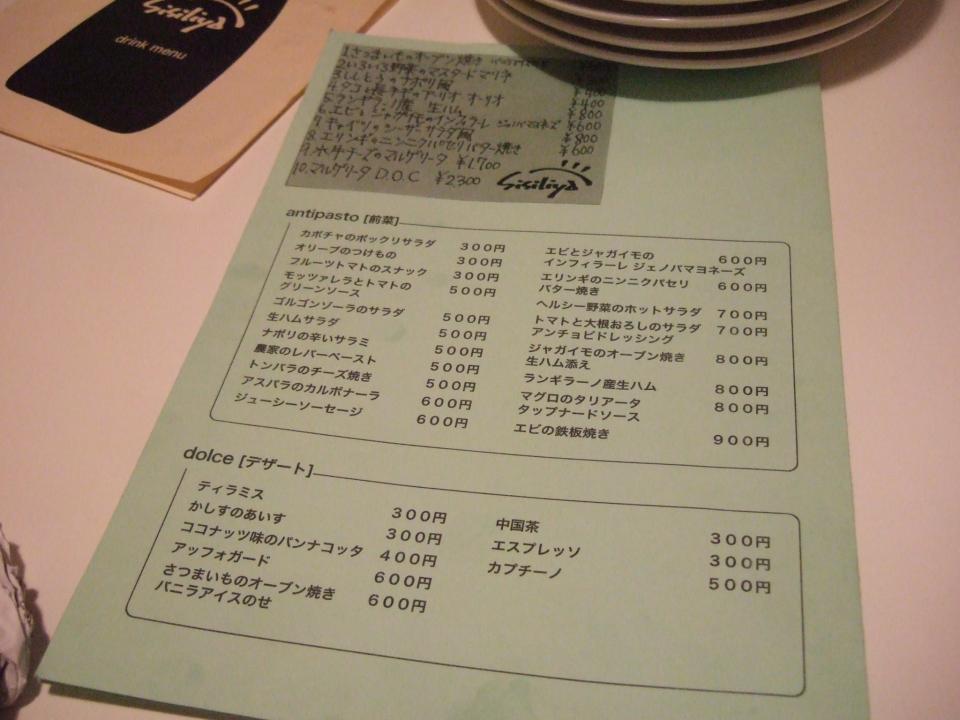 Sisiliya
drink menu
1.さつまいものオーブン焼き
2.いろいろ野菜のマスタードマリネ
3.ししとうのナポリ風 ¥400
4.タコと長ネギのアーリオ オーリオ ¥400
5.ランギラーノ産 生ハム ¥800
6.エビとジャガイモのインフィラーレ ジェノバマヨネーズ ¥600
7.キャベツのシーザーサラダ風 ¥800
8.エリンギのニンニクパセリバター焼き ¥600
9.水牛チーズのマルゲリータ ¥1,700
10.マルゲリータ D.O.C ¥2300
Sisiliya
antipasto [前菜]
カボチャのポックリサラダ 300円
オリーブのつけもの 300円
フルーツトマトのスナック 300円
モッツァレラとトマトの
グリーンソース 500円
ゴルゴンゾーラのサラダ 500円
生ハムサラダ 500円
ナポリの辛いサラミ 500円
農家のレバーペースト 500円
トンバラのチーズ焼き 500円
アスパラのカルボナーラ 600円
ジューシーソーセージ 600円
エビとジャガイモの
インフィラーレ ジェノバマヨネーズ 600円
エリンギのニンニクパセリ
バター焼き 600円
ヘルシー野菜のホットサラダ 700円
トマトと大根おろしのサラダ 700円
アンチョビドレッシング
ジャガイモのオーブン焼き 800円
生ハム添え
ランギラーノ産生ハム 800円
マグロのタリアータ 800円
タップナードソース
エビの鉄板焼き 900円
dolce [デザート]
ティラミス 300円
かしすのあいす 300円
ココナッツ味のパンナコッタ 400円
アッフォガード 600円
さつまいものオーブン焼き 600円
バニラアイスのせ
中国茶 300円
エスプレッソ 300円
カプチーノ 500円